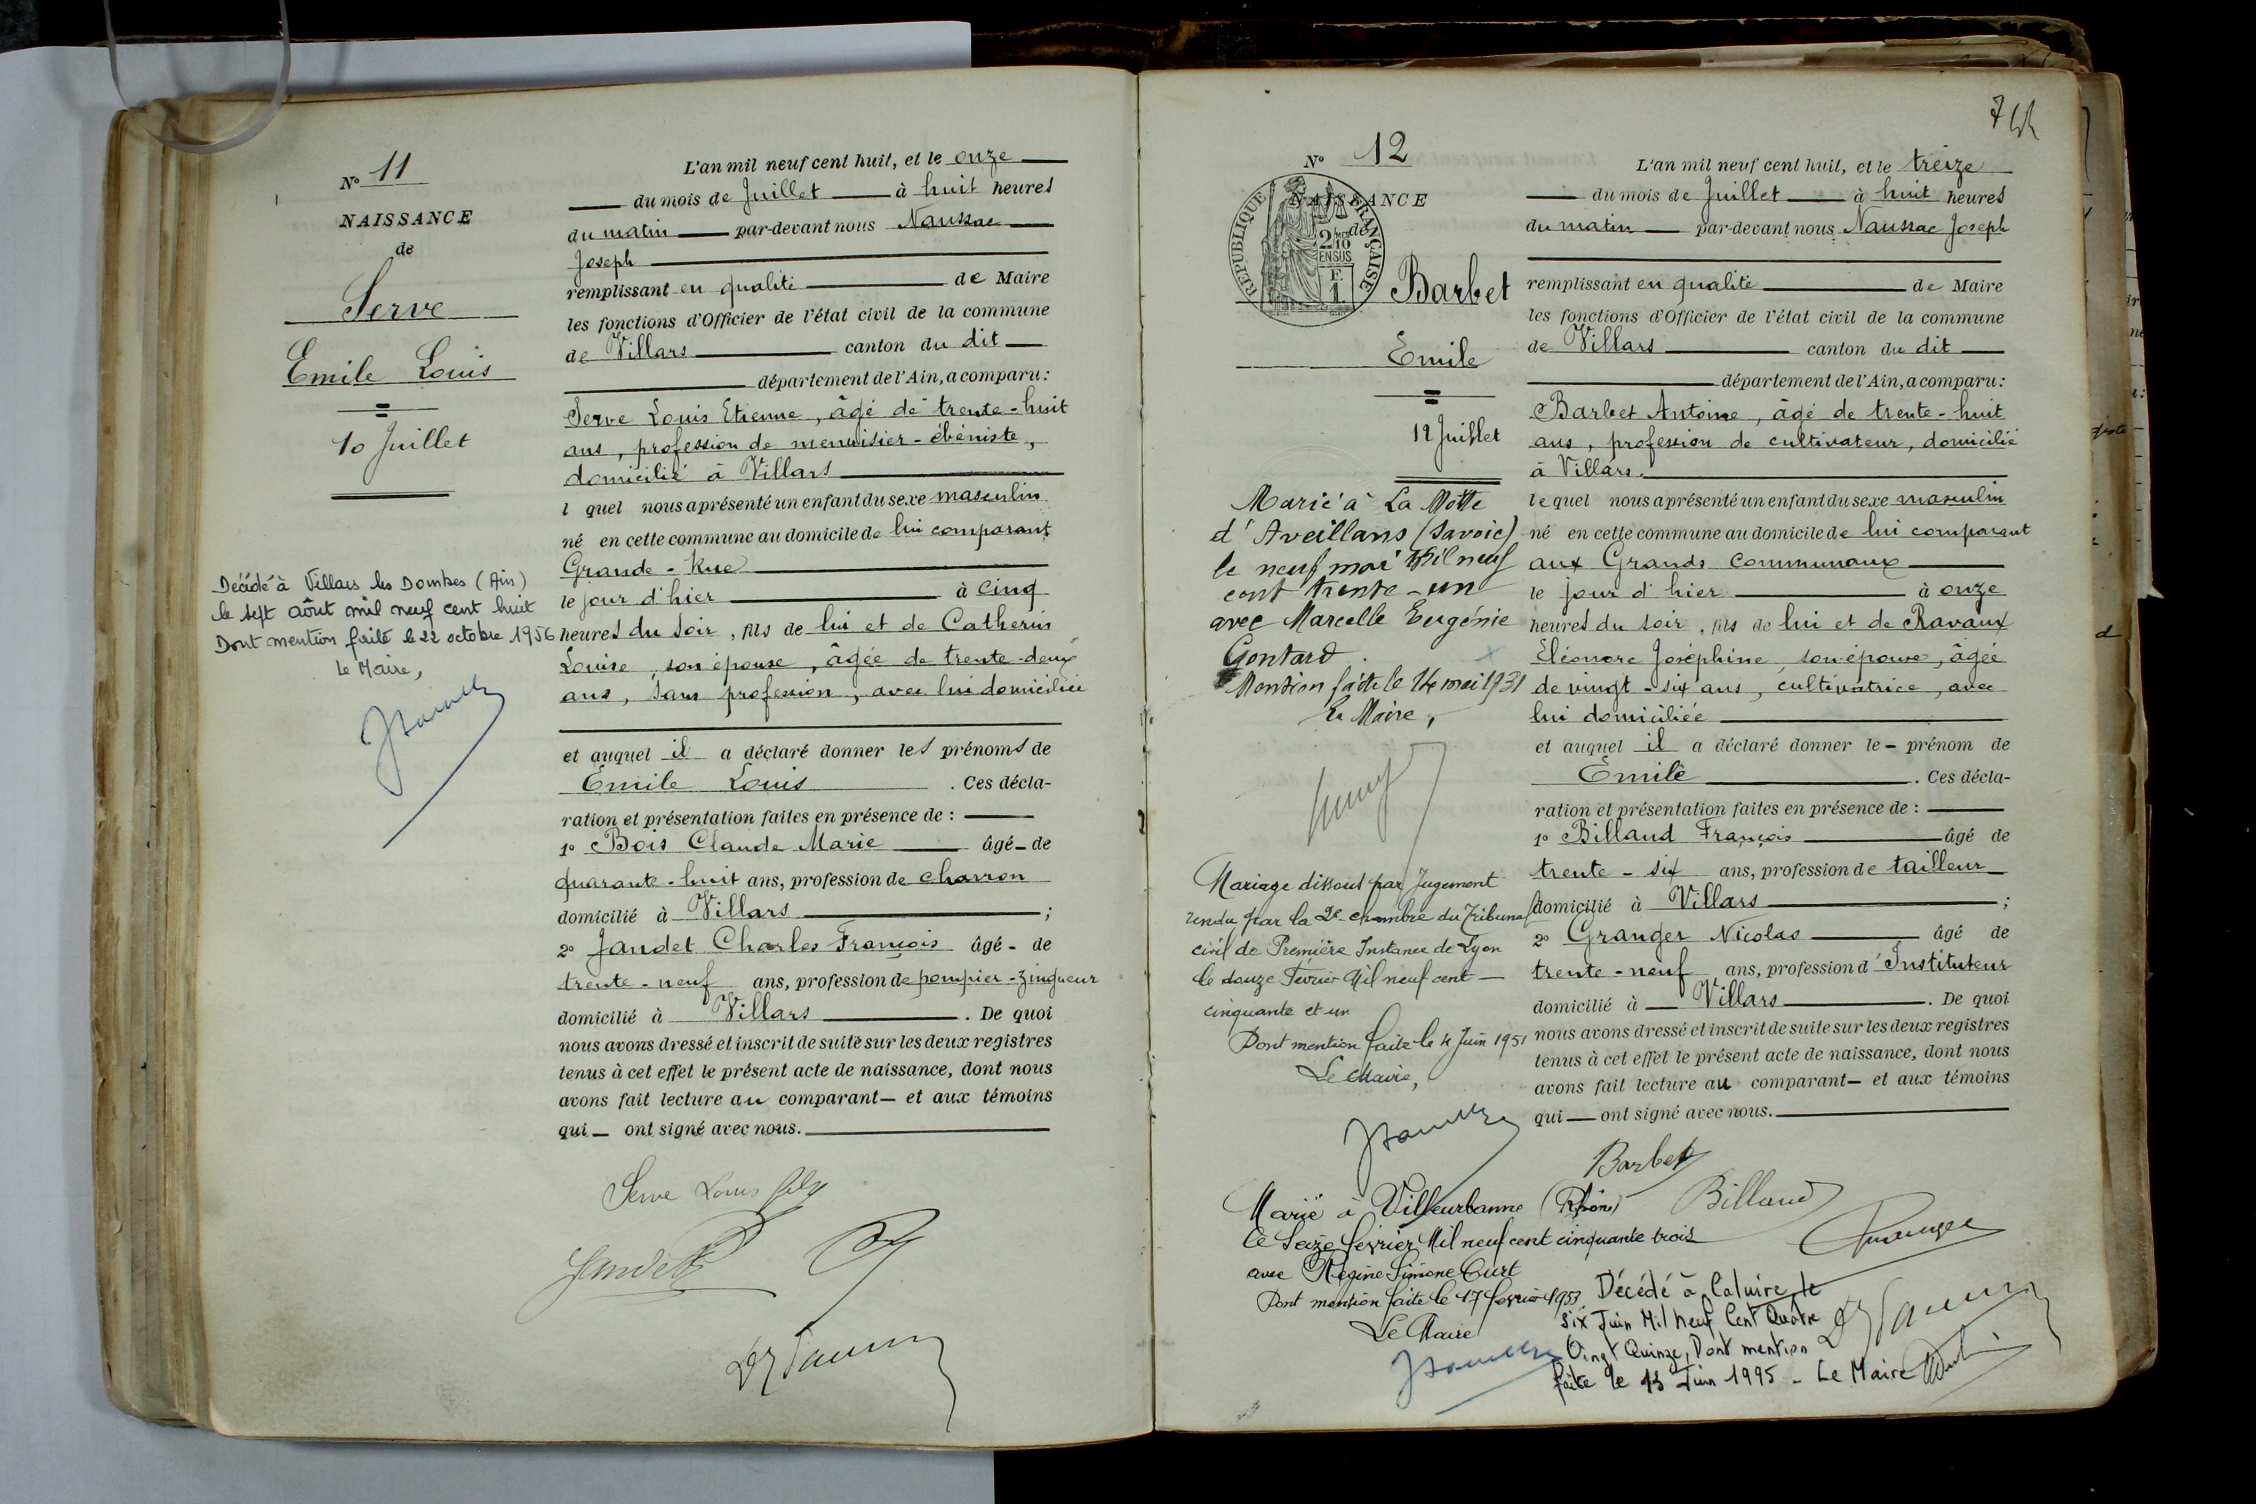 N° 11
NAISSANCE
de
Serve
Emile Louis
10 Juillet
Décédé à Villars les Dombes (Ain)
le sept août mil neuf cent huit
Dont mention faite le 22 octobre 1956
Le Maire,
L'an mil neuf cent huit, et le onze
du mois de Juillet à huit heures
du matin par-devant nous Naussac
Joseph
remplissant en qualité de Maire
les fonctions d'Officier de l'état civil de la commune
de Villars canton du dit
département de l'Ain, a comparu :
Serve Louis Etienne, âgé de trente-huit
ans, profession de menuisier-ébéniste,
domicilié à Villars
l quel nous a présenté un enfant du sexe masculin
né en cette commune au domicile de lui comparant
Grande-Rue
le jour d'hier à cinq
heures du soir, fils de lui et de Catherin
Louise, son épouse, âgée de trente-deux
ans, sans profession, avec lui domiciliée
et auquel il a déclaré donner les prénoms de
Emile Louis . Ces décla-
ration et présentation faites en présence de :
1° Bois Claude Marie âgé de
quarante-huit ans, profession de charron
domicilié à Villars ;
2° Jaudet Charles François âgé de
trente-neuf ans, profession de pompier-zingueur
domicilié à Villars . De quoi
nous avons dressé et inscrit de suite sur les deux registres
tenus à cet effet le présent acte de naissance, dont nous
avons fait lecture au comparant et aux témoins
qui ont signé avec nous.
Serve Louis
Jaudet
N° 12
NAISSANCE
de
RÉPUBLIQUE FRANÇAISE
2/10
EN SUS
Barbet
Emile
12 Juillet
Marié à La Motte
d'Aveillans (Savoie)
le neuf mai mil neuf
cent trente-un
avec Marcelle Eugénie
Gontard.
Mention faite le 14 mai 1931
Le Maire,
Mariage dissout par Jugement
rendu par la 2e chambre du Tribunal
civil de Première Instance de Lyon
le douze Février Mil neuf cent
cinquante et un
Dont mention faite le 4 Juin 1951
Le Maire,
Marié à Villeurbanne (Rhône)
le Seize février Mil neuf cent cinquante trois
avec Régine Simone Curt
Dont mention faite le 17 février 1953
Le Maire
L'an mil neuf cent huit, et le treize
du mois de Juillet à huit heures
du matin par-devant nous Naussac Joseph
remplissant en qualité de Maire
les fonctions d'Officier de l'état civil de la commune
de Villars canton du dit
département de l'Ain, a comparu :
Barbet Antoine, âgé de trente-huit
ans, profession de cultivateur, domicilié
à Villars.
lequel nous a présenté un enfant du sexe masculin
né en cette commune au domicile de lui comparant
aux Grands Communaux
le jour d'hier à onze
heures du soir, fils de lui et de Ravaux
Eléonore Joséphine, son épouse, âgée
de vingt-six ans, cultivatrice, avec
lui domiciliée
et auquel il a déclaré donner le prénom de
Emile . Ces décla-
ration et présentation faites en présence de :
1° Billaud François âgé de
trente-six ans, profession de tailleur
domicilié à Villars ;
2° Granger Nicolas âgé de
trente-neuf ans, profession d'Instituteur
domicilié à Villars . De quoi
nous avons dressé et inscrit de suite sur les deux registres
tenus à cet effet le présent acte de naissance, dont nous
avons fait lecture au comparant et aux témoins
qui ont signé avec nous.
Barbet
Billaud
Granger
Décédé à Caluire le
six Juin Mil Neuf Cent Quatre
Vingt Quinze, Dont mention
faite le 13 Juin 1995 - Le Maire